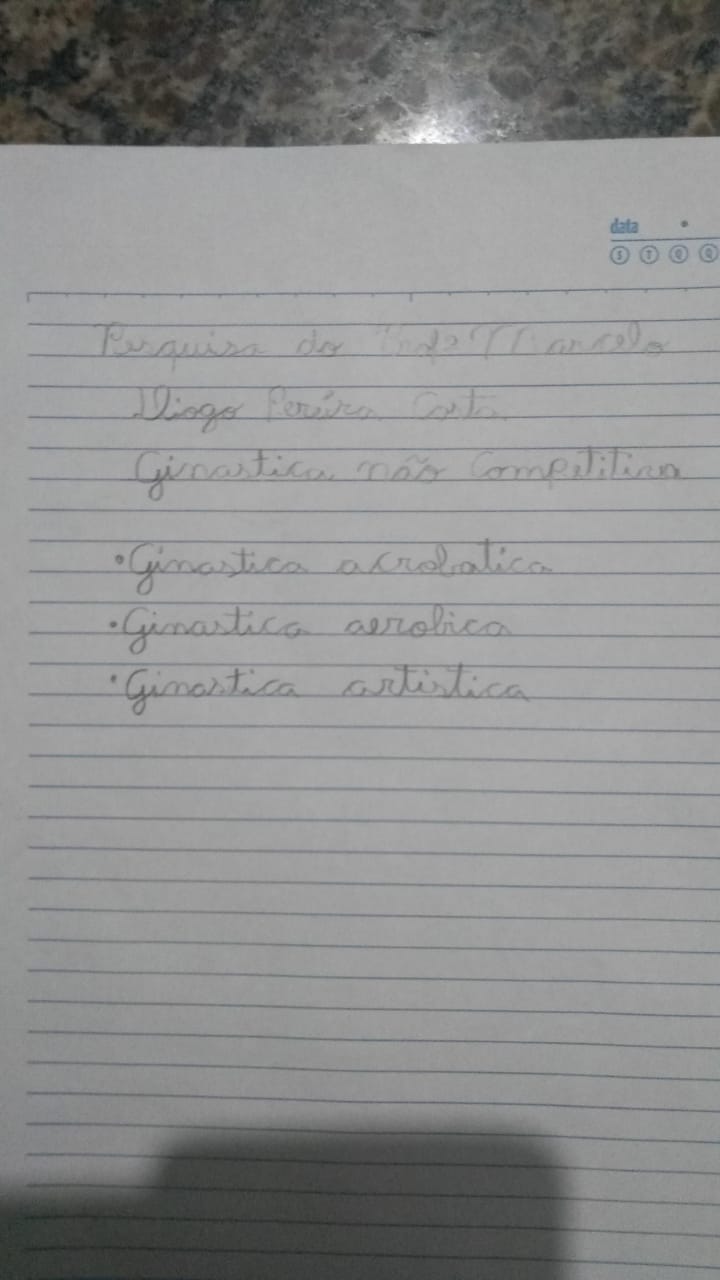 data
S T Q Q
Pesquisa do Profº Marcelo
Diogo Pereira Costa
Ginastica não Competitiva
• Ginastica acrobatica
• Ginastica aerobica
• Ginastica artistica